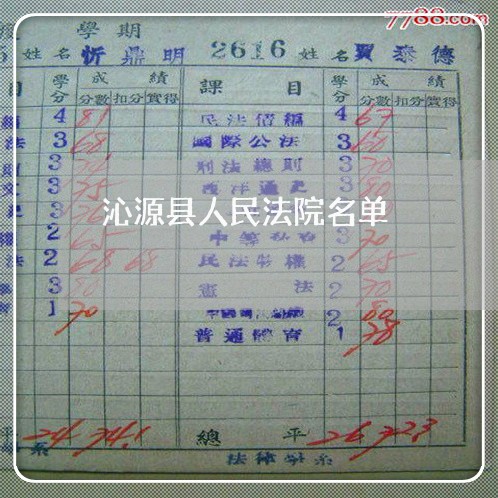 7788.com
學期
姓名 忻鼎明 2616 姓名 賈泰德
目 學分 成績 課目 學分 成績
分數 扣分 實得 分數 扣分 實得
4 81 民法債編 4 67
法 3 68 國際公法 3 60
3 刑法總則 3 70
文 3 75 西洋通史 3 80
沁源县人民法院名单
2 65 中等私有 3 70
法 2 68 68 民法物權 2 65
3 80 憲法 2 70
1 70 2 80
普通體育 1 78
平 24 74.1 總平 26 72.3
系 法律學系